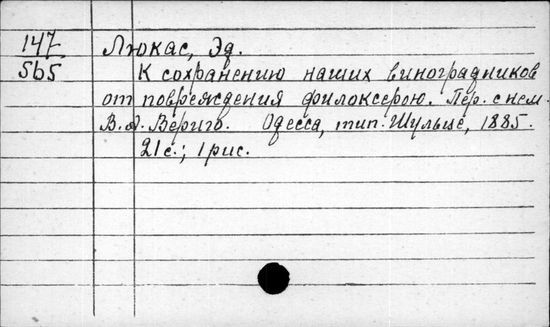 147 Люкас, Эд.
565 К сохранению наших виноградников
от повреждения филоксерою. Пер. с нем.
В. А. Вериго. Одесса, тип. Шульце, 1885.
21 с.; 1 рис.